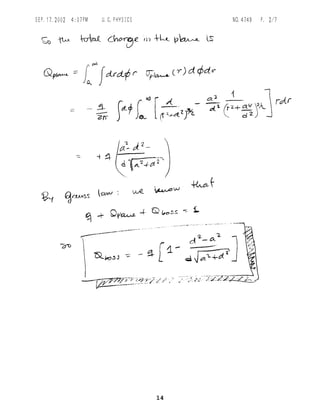 SEP. 17. 2002 4:37PM U C PHYSICS NO. 4748 P. 2/7
So the total charge in the plane is
Q_plane = ∫_a^∞ ∫ dr dφ r σ_plane (r) dφ dr
= - q/2π ∫dφ ∫_a^∞ [ d/(r²+d²)^{3/2} - a²/d² 1/(r²+a⁴/d²)^{3/2} ] r dr
= + q ( a²-d² / d√(a²+d²) )
By gauss law: we know that
q + Q_plane + Q_boss = 1
so
Q_boss = - q [ 1 - d²-a² / d√(a²+d²) ]
14